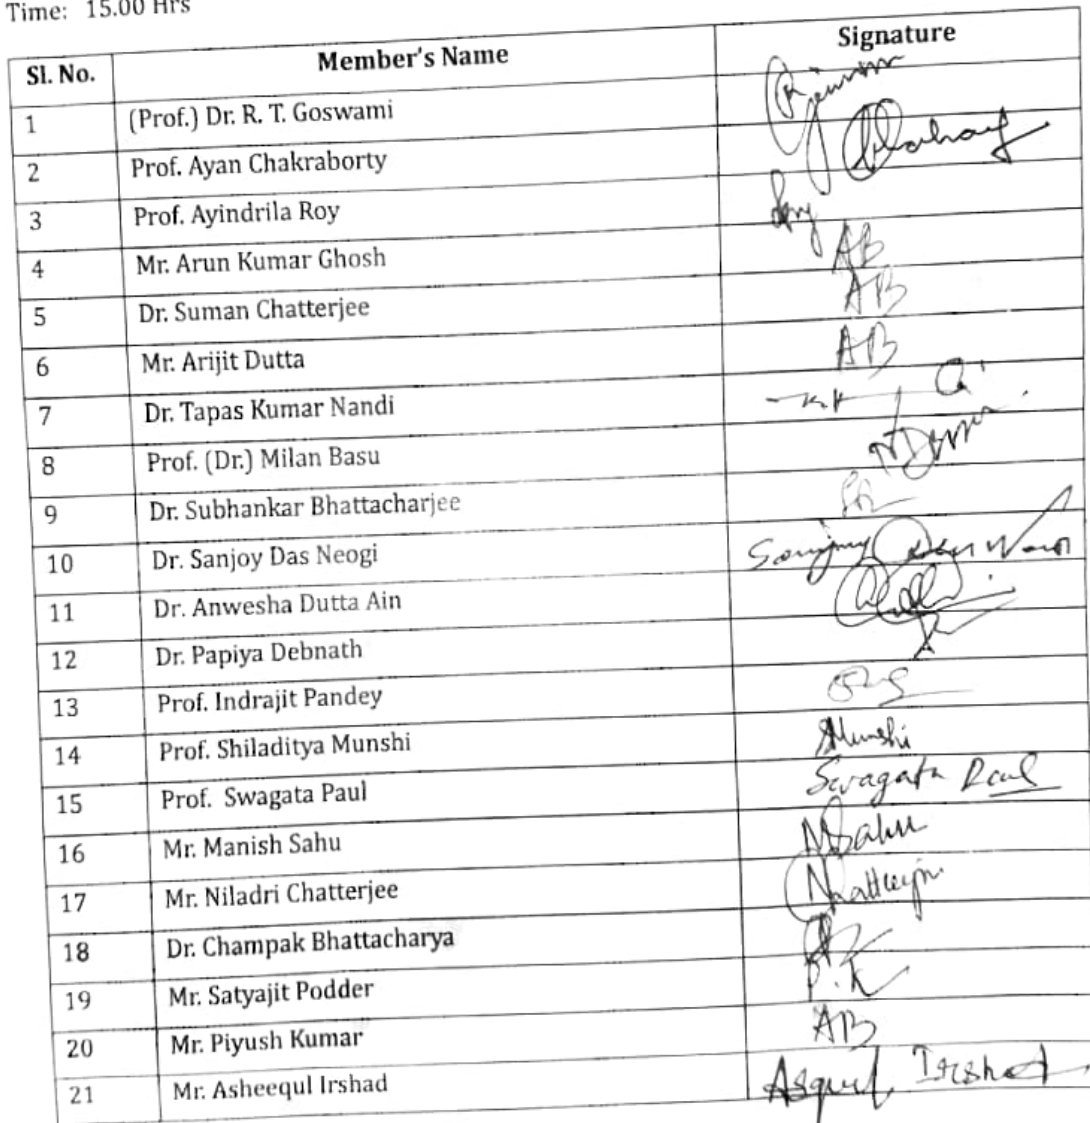 Time: 15.00 Hrs
Sl. No. Member's Name Signature
1 (Prof.) Dr. R. T. Goswami
2 Prof. Ayan Chakraborty
3 Prof. Ayindrila Roy
4 Mr. Arun Kumar Ghosh AB
5 Dr. Suman Chatterjee AB
6 Mr. Arijit Dutta AB
7 Dr. Tapas Kumar Nandi
8 Prof. (Dr.) Milan Basu
9 Dr. Subhankar Bhattacharjee
10 Dr. Sanjoy Das Neogi
11 Dr. Anwesha Dutta Ain
12 Dr. Papiya Debnath
13 Prof. Indrajit Pandey
14 Prof. Shiladitya Munshi Munshi
15 Prof. Swagata Paul Swagata Paul
16 Mr. Manish Sahu MSahu
17 Mr. Niladri Chatterjee NChatterjee
18 Dr. Champak Bhattacharya
19 Mr. Satyajit Podder P.K
20 Mr. Piyush Kumar AB
21 Mr. Asheequl Irshad Irshad